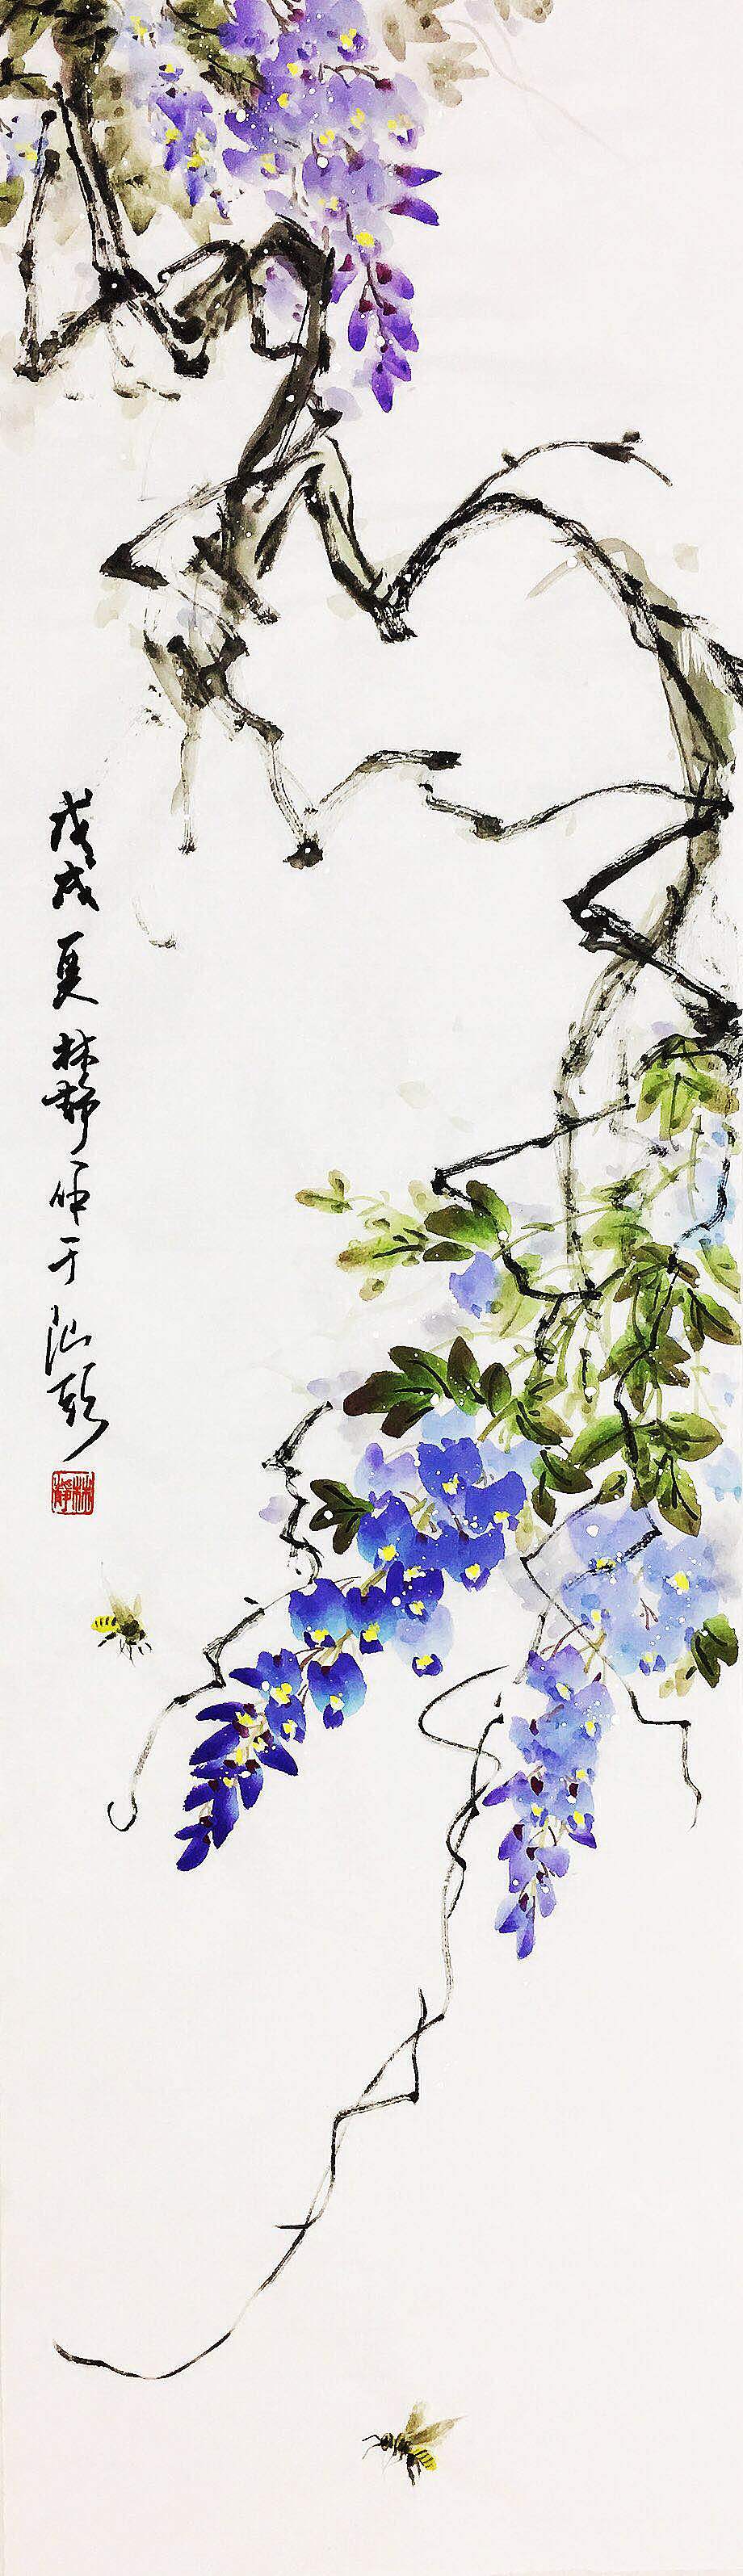 戊戌夏林静作于汕頭
林静